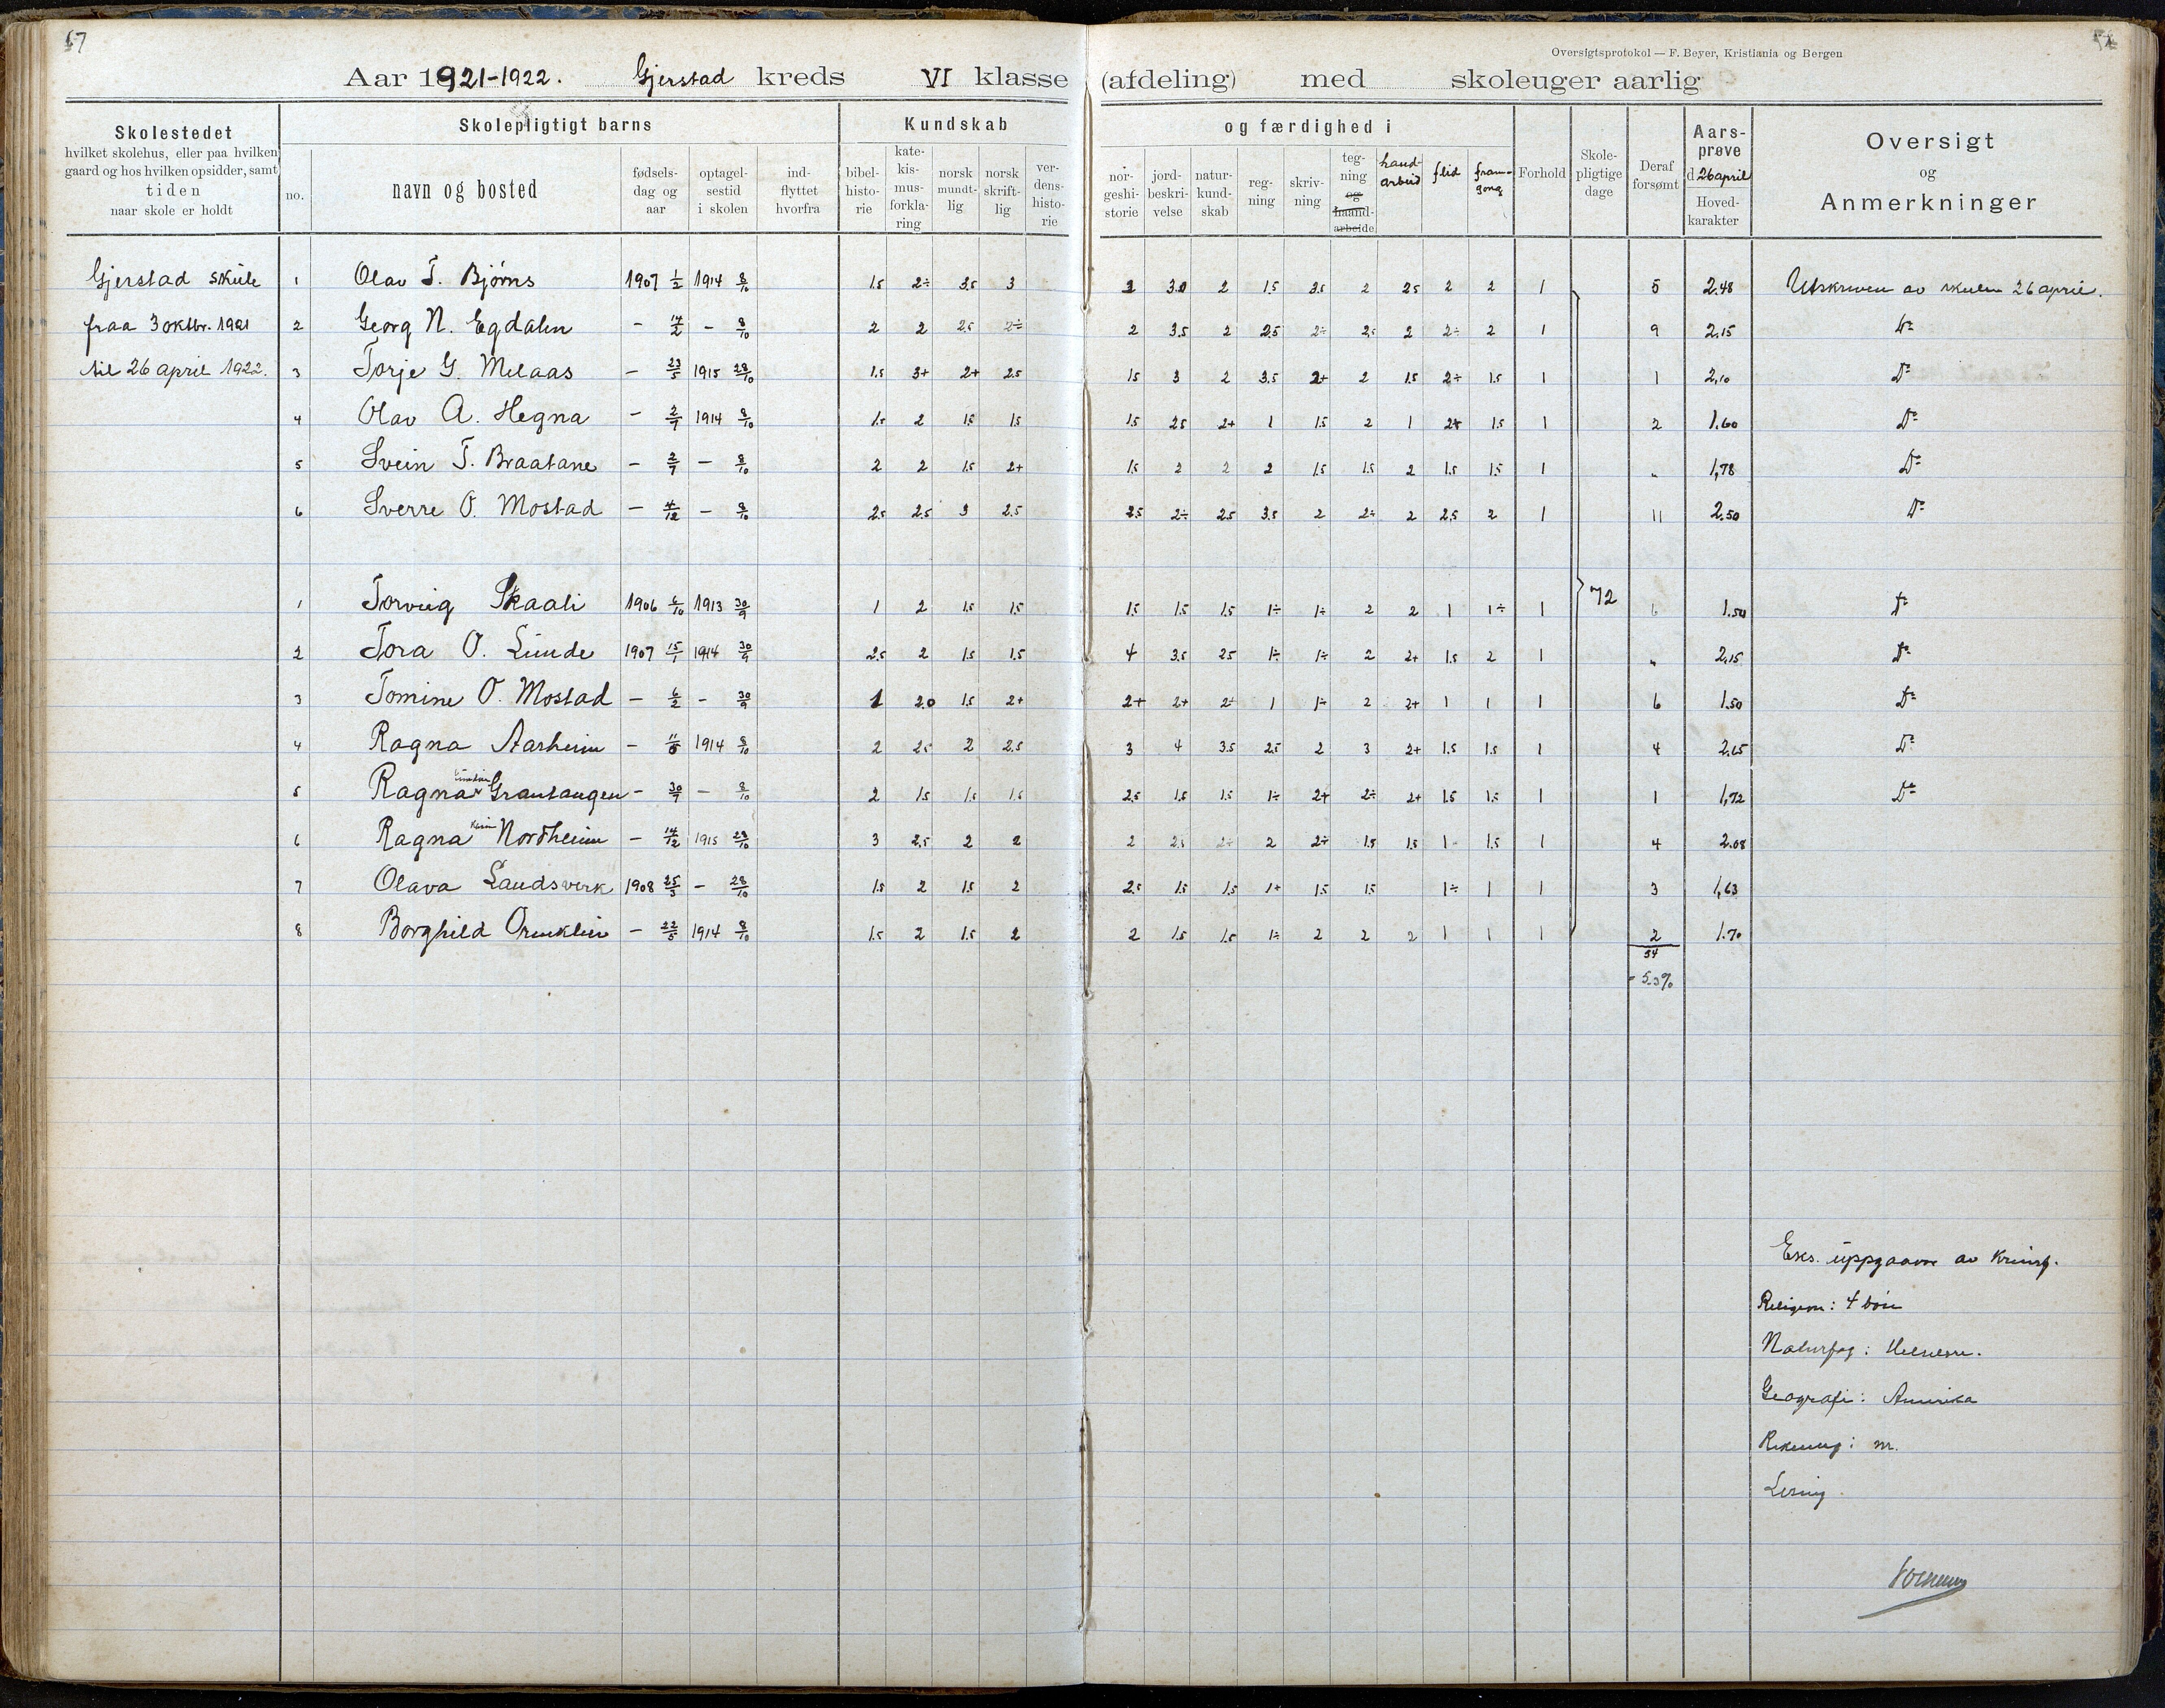 Oversigtsprotokol — F. Beyer, Kristiania og Bergen
Aar 1921-1922. Gjerstad kreds VI klasse (afdeling) med skoleuger aarlig
Skolestedet
hvilket skolehus, eller paa hvilken
gaard og hos hvilken opsidder, samt
tiden
naar skole er holdt
Skolepligtigt barns
no.
navn og bosted
fødsels-
dag og
aar
optagel-
sestid
i skolen
ind-
flyttet
hvorfra
Kundskab og færdighed i
bibel-
histo-
rie
kate-
kis-
mus-
forkla-
ring
norsk
mundt-
lig
norsk
skrift-
lig
ver-
dens-
histo-
rie
nor-
geshi-
storie
jord-
beskri-
velse
natur-
kund-
skab
reg-
ning
skriv-
ning
teg-
ning
og
haand-
arbeide
hand-
arbeid
flid
fram-
gong
Forhold
Skole-
pligtige
dage
Deraf
forsømt
Aars-
prøve
d 26 april
Hoved-
karakter
Oversigt
og
Anmerkninger
Gjerstad skule 1 Olav T. Bjørns 1907 1/2 1914 8/10 1.5 2÷ 3.5 3 2 3.0 2 1.5 3.5 2 2.5 2 2 1 5 2.48 Utskriven av skulen 26 april.
fraa 3 oktbr. 1921 2 Georg N. Egdalen – 14/2 – 8/10 2 2 2.5 2÷ 2 3.5 2 2.5 2÷ 2.5 2 2÷ 2 1 9 2.15 Do
til 26 april 1922. 3 Torje G. Melaas – 23/5 1915 28/10 1.5 3+ 2+ 2.5 1.5 3 2 3.5 2+ 2 1.5 2÷ 1.5 1 1 2,10 Do
4 Olav A. Hegna – 2/7 1914 8/10 1.5 2 1.5 1.5 1.5 2.5 2+ 1 1.5 2 1 2+ 1.5 1 2 1.60 Do
5 Svein T. Braatane – 2/7 – 8/10 2 2 1.5 2+ 1.5 2 2 2 1.5 1.5 2 1.5 1.5 1 „ 1,78 Do
6 Sverre O. Mostad – 4/12 – 8/10 2.5 2.5 3 2.5 2.5 2÷ 2.5 3.5 2 2÷ 2 2.5 2 1 11 2.50 Do
1 Torvig Skaali 1906 6/10 1913 30/9 1 2 1.5 1.5 1.5 1.5 1.5 1÷ 1÷ 2 2 1 1÷ 1 72 6 1.50 Do
2 Tora O. Lunde 1907 15/1 1914 30/9 2.5 2 1.5 1.5 4 3.5 2.5 1÷ 1÷ 2 2+ 1.5 2 1 „ 2,15 Do
3 Tomine O. Mostad – 6/2 – 30/9 1 2.0 1.5 2+ 2+ 2+ 2÷ 1 1÷ 2 2+ 1 1 1 6 1.50 Do
4 Ragna Aasheim – 1914 8/10 2 2.5 2 2.5 3 4 3.5 2.5 2 3 2+ 1.5 1.5 1 4 2.65 Do
5 Ragna Grautaugen – 30/9 – 8/10 2 1.5 1.5 1.5 2.5 1.5 1.5 1÷ 2+ 2÷ 2+ 1.5 1.5 1 1 1,72 Do
6 Ragna Nordheim – 14/12 1915 28/10 3 2.5 2 2 2 2.5 2÷ 2 2+ 1.5 1.5 1 1.5 1 4 2.08
7 Olava Landsverk 1908 25/3 – 28/10 1.5 2 1.5 2 2.5 1.5 1.5 1+ 1.5 1.5 1÷ 1 1 3 1,63
8 Borghild Ormklev – 22/5 1914 8/10 1.5 2 1.5 2 2 1.5 1.5 1÷ 2 2 2 1 1 1 2 1.70
54
= 5.3%
Eks. uppgaaver av
Religion: 4 bøn
Naturfag: Helselære.
Geografi: Amerika
Rekning: nr.
Lesing